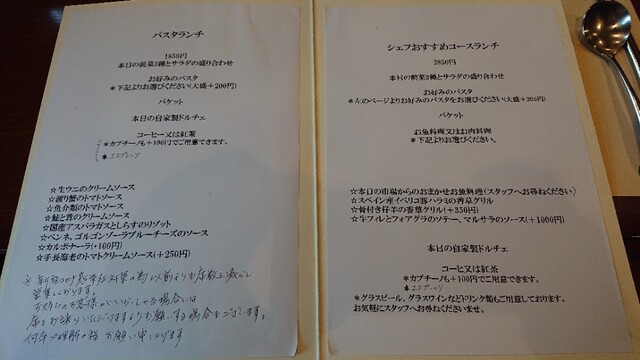 パスタランチ
1850円
本日の前菜3種とサラダの盛り合わせ
お好みのパスタ
*下記よりお選びください(大盛+200円)
バケット
本日の自家製ドルチェ
コーヒー又は紅茶
*カプチーノも+100円でご用意できます。
*エスプレッソ
☆生ウニのクリームソース
☆渡り蟹のトマトソース
☆魚介類のトマトソース
☆鮭と茸のクリームソース
☆国産アスパラガスとしらすのリゾット
☆ペンネ、ゴルゴンゾーラブルーチーズのソース
☆カルボナーラ(+100円)
☆手長海老のトマトクリームソース(+250円)
※新型コロナ感染症対策の為、以前よりも席数を減らして
営業しております。
お待ちのお客様がいらっしゃる場合は
席をお譲りいただけますようお願いする場合もございます。
何卒ご理解の程お願い申し上げます
シェフおすすめコースランチ
2850円
本日の前菜3種とサラダの盛り合わせ
お好みのパスタ
*左のページよりお好みのパスタをお選びください(大盛+200円)
バケット
お魚料理又はお肉料理
*下記よりお選びください。
☆本日の市場からのおまかせお魚料理(スタッフへお尋ねください)
☆スペイン産イベリコ豚ハラミの香草グリル
☆骨付き仔羊の香草グリル(+350円)
☆牛フィレとフォアグラのソテー、マルサラのソース(+1000円)
本日の自家製ドルチェ
コーヒー又は紅茶
*カプチーノも+100円でご用意できます。
*エスプレッソ
*グラスビール、グラスワインなどドリンク類もご用意しております。
お気軽にスタッフへお尋ねくださいませ。